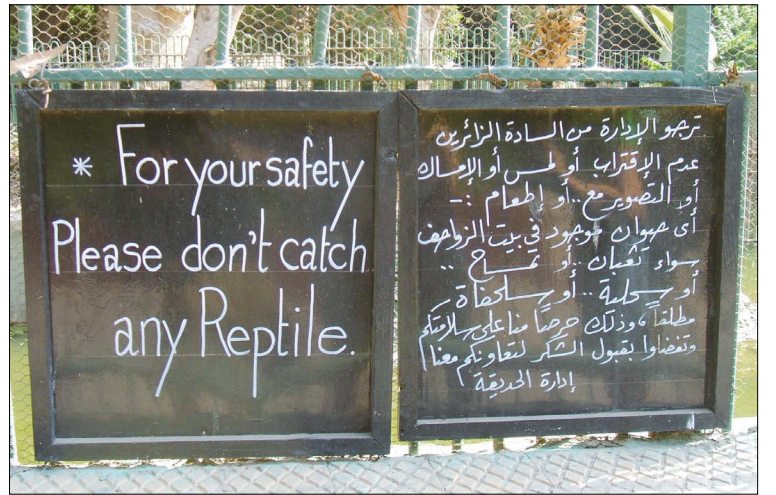 * For your safety
Please don't catch
any Reptile.
ترجو الإدارة من السادة الزائرين
عدم الإقتراب أو لمس أو الإمساك
أو التصوير مع .. أو إطعام :-
أى حيوان موجود فى بيت الزواحف
سواء ثعبان .. أو تمساح ..
أو سحلية .. أو سلحفاة
مطلقاً، وذلك حرصاً منا على سلامتكم
وتفضلوا بقبول الشكر لتعاونكم معنا
إدارة الحديقة